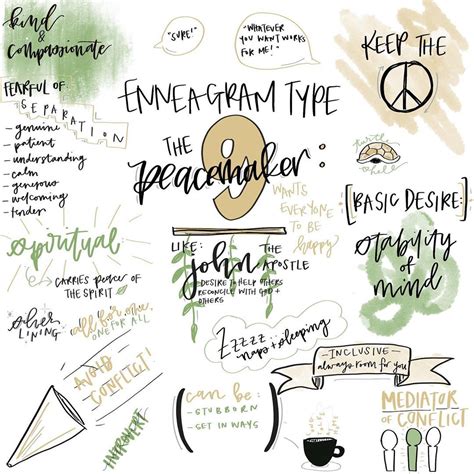 kind
&
compassionate
"SURE!"
"WHATEVER
YOU WANT WORKS
FOR ME!"
KEEP THE
FEARFUL OF:
SEPARATION
- genuine
- patient
- understanding
- calm
- generous
- welcoming
- tender
ENNEAGRAM TYPE
9
THE
peacemaker:
WANTS
EVERYONE
TO BE
happy
turtle
shell
[BASIC DESIRE:]
stability
of
mind
spiritual
CARRIES peace OF
THE SPIRIT
LIKE:
john
THE
APOSTLE
- DESIRE TO HELP OTHERS
RECONCILE WITH GOD +
OTHERS
silver
LINING
all for one,
ONE FOR ALL
Zzzzz
naps + sleeping
AVOID
CONFLICT!
INTROVERT
can be:
- STUBBORN
- SET IN WAYS
- INCLUSIVE -
always room for you
MEDIATOR
OF CONFLICT